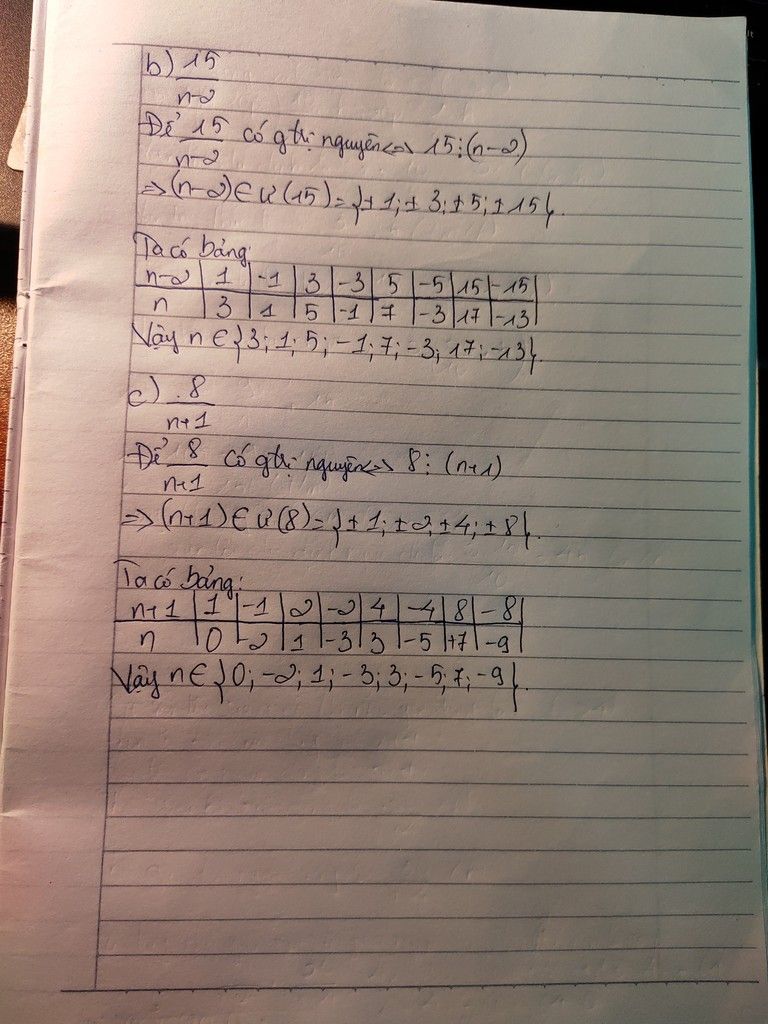 b) 15/(n-2)
Để 15/(n-2) có gtrị nguyên <=> 15⋮(n-2)
=> (n-2) ∈ Ư(15) = {±1; ±3; ±5; ±15}.
Ta có bảng:
n-2 | 1 | -1 | 3 | -3 | 5 | -5 | 15 | -15
n | 3 | 1 | 5 | -1 | 7 | -3 | 17 | -13
Vậy n ∈ {3; 1; 5; -1; 7; -3; 17; -13}.
c) 8/(n+1)
Để 8/(n+1) có gtrị nguyên <=> 8⋮(n+1)
=> (n+1) ∈ Ư(8) = {±1; ±2; ±4; ±8}.
Ta có bảng:
n+1 | 1 | -1 | 2 | -2 | 4 | -4 | 8 | -8
n | 0 | -2 | 1 | -3 | 3 | -5 | +7 | -9
Vậy n ∈ {0; -2; 1; -3; 3; -5; 7; -9}.